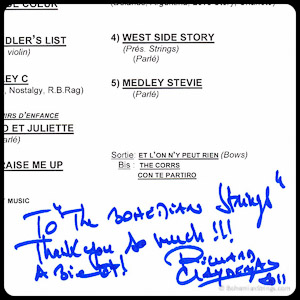 DE COEUR
DLER'S LIST
violin)
LEY C
, Nostalgy, R.B.Rag)
IRS D'ENFANCE
D ET JULIETTE
RAISE ME UP
MUSIC
4) WEST SIDE STORY
(Prés. Strings)
(Parlé)
5) MEDLEY STEVIE
(Parlé)
Sortie: ET L'ON N'Y PEUT RIEN (Bows)
Bis : THE CORRS
CON TE PARTIRO
To "The BOHEMIAN Strings"
Thank you so much!!!
A Bientôt!
RICHARD
CLAYDERMAN